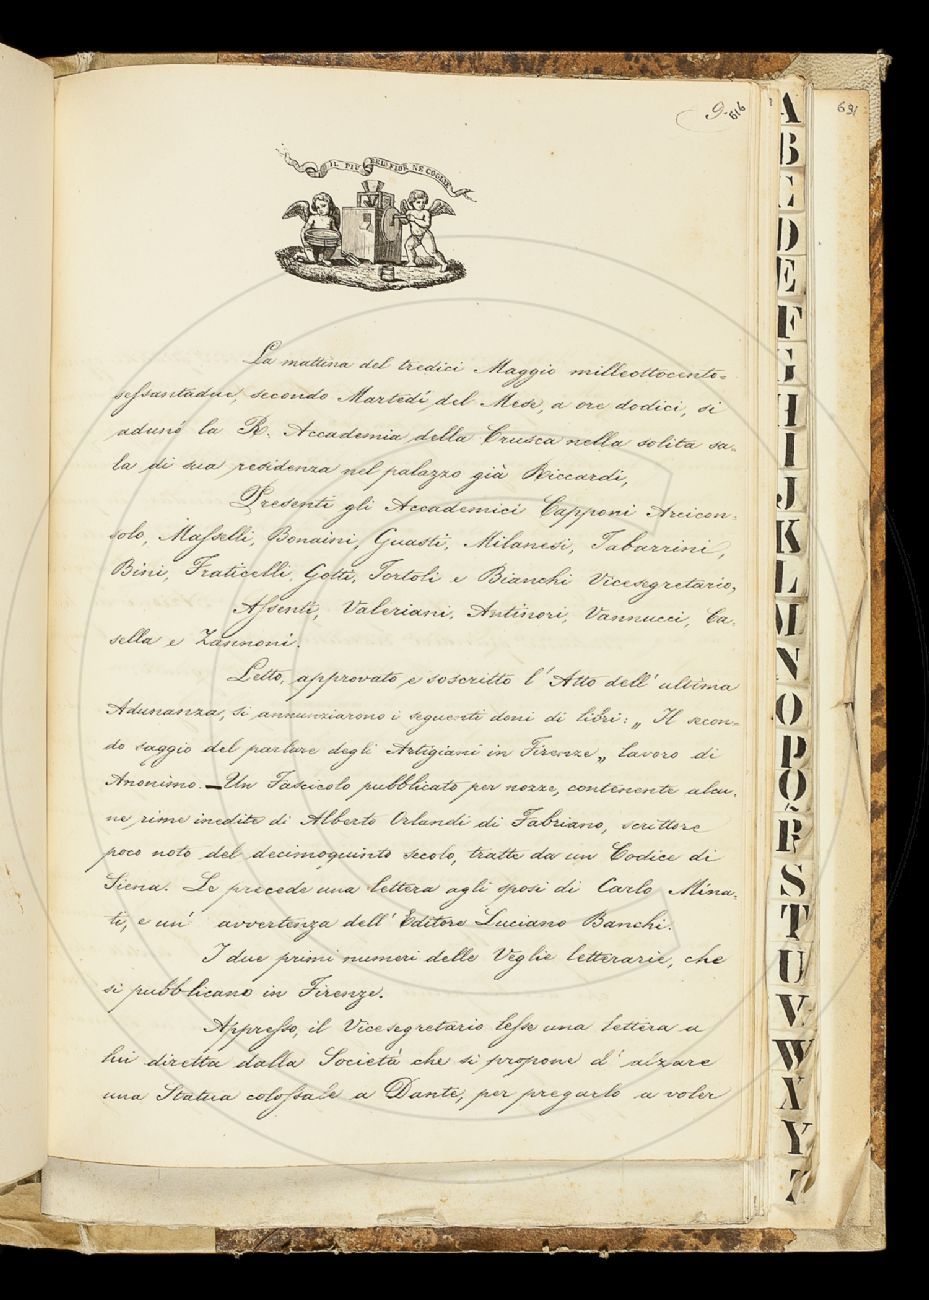 9.
616
691
IL PIÙ BEL FIOR NE COGLIE
La mattina del tredici Maggio milleottocento=
sessantadue, secondo Martedì del Mese, a ore dodici, si
adunò la R. Accademia della Crusca nella solita sa=
la di sua residenza nel palazzo già Riccardi,
Presenti gli Accademici Capponi Arcicon=
solo, Masselli, Bonaini, Guasti, Milanesi, Tabarrini,
Bini, Fraticelli, Gotti, Tortoli e Bianchi Vicesegretario,
Assenti, Valeriani, Antinori, Vannucci, Ca=
sella e Zannoni.
Letto, approvato e soscritto l'Atto dell'ultima
Adunanza, si annunziarono i seguenti doni di libri: „ Il secon=
do saggio del parlare degli Artigiani in Firenze „ lavoro di
Anonimo. — Un Fascicolo pubblicato per nozze, contenente alcu=
ne rime inedite di Alberto Orlandi di Fabriano, scrittore
poco noto del decimoquinto secolo, tratte da un Codice di
Siena. Le precede una lettera agli sposi di Carlo Mina=
ti, e un' avvertenza dell'Editore Luciano Banchi.
I due primi numeri delle Veglie letterarie, che
si pubblicano in Firenze.
Appresso, il Vicesegretario lesse una lettera a
lui diretta dalla Società che si propone d'alzare
una Statua colossale a Dante, per pregarlo a voler
A
B
C
D
E
F
G
H
I
J
K
L
M
N
O
P
Q
R
S
T
U
V
W
X
Y
Z